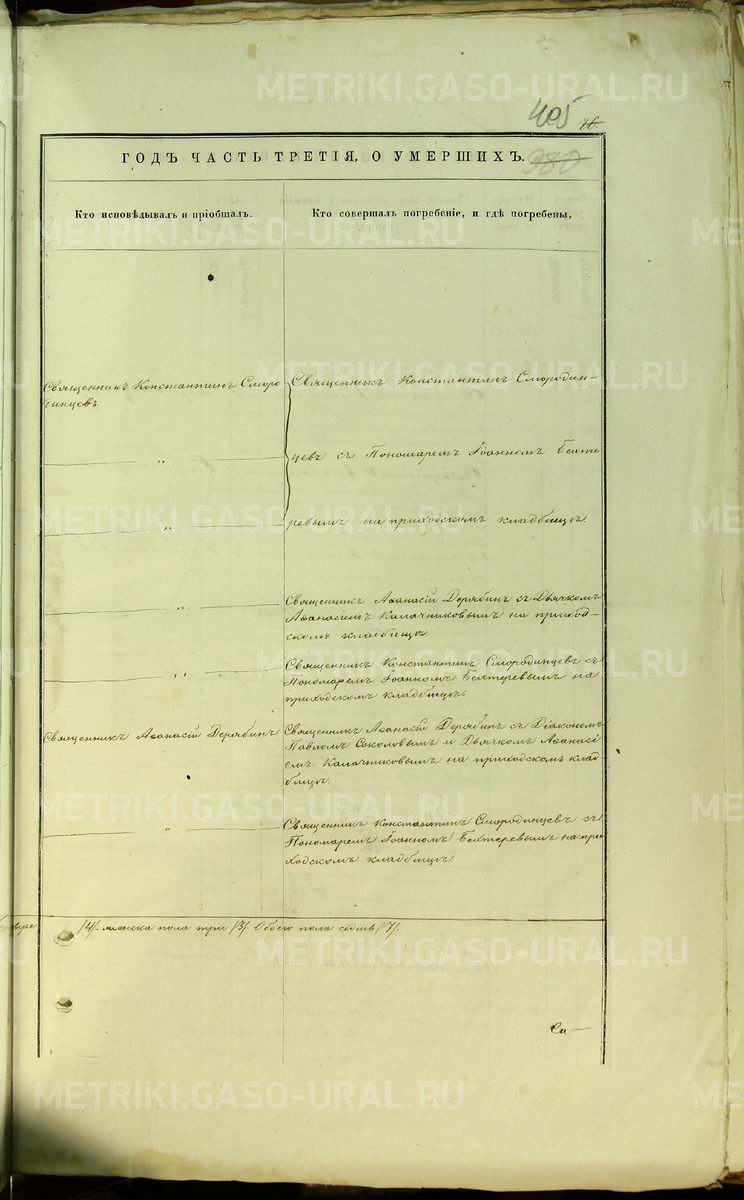 METRIKI.GASO-URAL.RU
405
76
ГОДЪ ЧАСТЬ ТРЕТІЯ, О УМЕРШИХЪ.
980
Кто исповѣдывалъ и пріобщалъ.
Кто совершалъ погребеніе, и гдѣ погребены.
Священникъ Константинъ Сморо
динцевъ.
Священникъ Константинъ Смородин-
цевъ съ Пономаремъ Іоанномъ Бехте
ревымъ на приходскомъ кладбищѣ.
Священникъ Аѳанасій Дерябинъ съ Дьячкомъ
Аѳанасіемъ Калачниковымъ на приход-
скомъ кладбищѣ
Священникъ Константинъ Смородинцевъ съ
Пономаремъ Іоанномъ Бехтеревымъ на
приходскомъ кладбищѣ.
Священникъ Аѳанасій Дерябинъ
Священникъ Аѳанасій Дерябинъ съ Діакономъ
Павломъ Соколовымъ и Дьячкомъ Аѳанасі
емъ Калачниковымъ на приходскомъ клад-
бищѣ.
Священникъ Константинъ Смородинцевъ съ
Пономаремъ Іоанномъ Бехтеревымъ на при
ходскомъ кладбищѣ.
/4/ женска пола три /3/. Обоего пола семь /7/.
Си-